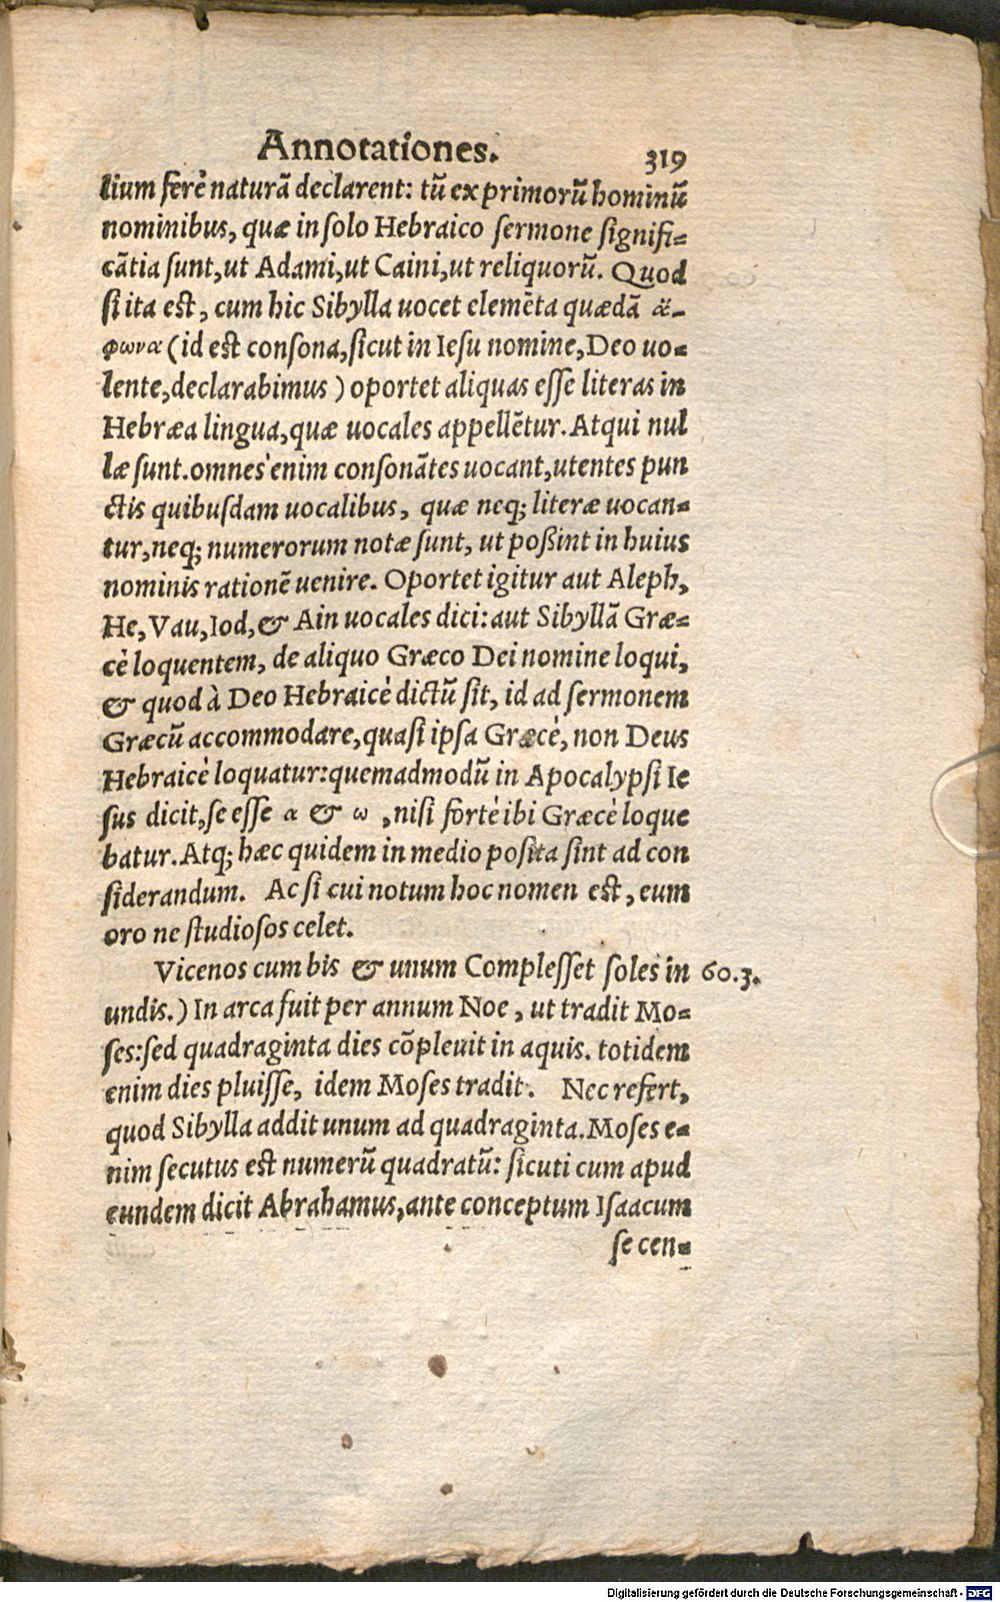 Annotationes. 319
lium ferè naturā declarent: tū ex primorū hominū
nominibus, quæ in ſolo Hebraico ſermone ſignifi=
cātia ſunt, ut Adami, ut Caini, ut reliquorū. Quod
ſi ita eſt, cum hic Sibylla uocet elemēta quædā ἄ-
φωνα (id eſt conſona, ſicut in Ieſu nomine, Deo uo=
lente, declarabimus) oportet aliquas eſſe literas in
Hebræa lingua, quæ uocales appellētur. Atqui nul
læ ſunt. omnes enim conſonātes uocant, utentes pun
ctis quibuſdam uocalibus, quæ neq; literæ uocan=
tur, neq; numerorum notæ ſunt, ut poßint in huius
nominis rationē uenire. Oportet igitur aut Aleph,
He, Vau, Iod, & Ain uocales dici: aut Sibyllā Græ=
cè loquentem, de aliquo Græco Dei nomine loqui,
& quod à Deo Hebraicè dictū ſit, id ad ſermonem
Græcū accommodare, quaſi ipſa Græcè, non Deus
Hebraicè loquatur: quemadmodū in Apocalypſi Ie
ſus dicit, ſe eſſe α & ω, niſi fortè ibi Græcè loque
batur. Atq; hæc quidem in medio poſita ſint ad con
ſiderandum. Ac ſi cui notum hoc nomen eſt, eum
oro ne ſtudioſos celet.
Vicenos cum bis & unum Compleſſet ſoles in 60.3.
undis.) In arca fuit per annum Noe, ut tradit Mo=
ſes: ſed quadraginta dies cōpleuit in aquis. totidem
enim dies pluiſſe, idem Moſes tradit. Nec refert,
quod Sibylla addit unum ad quadraginta. Moſes e=
nim ſecutus eſt numerū quadratū: ſicuti cum apud
eundem dicit Abrahamus, ante conceptum Iſaacum
ſe cen=
Digitalisierung gefördert durch die Deutsche Forschungsgemeinschaft - DFG